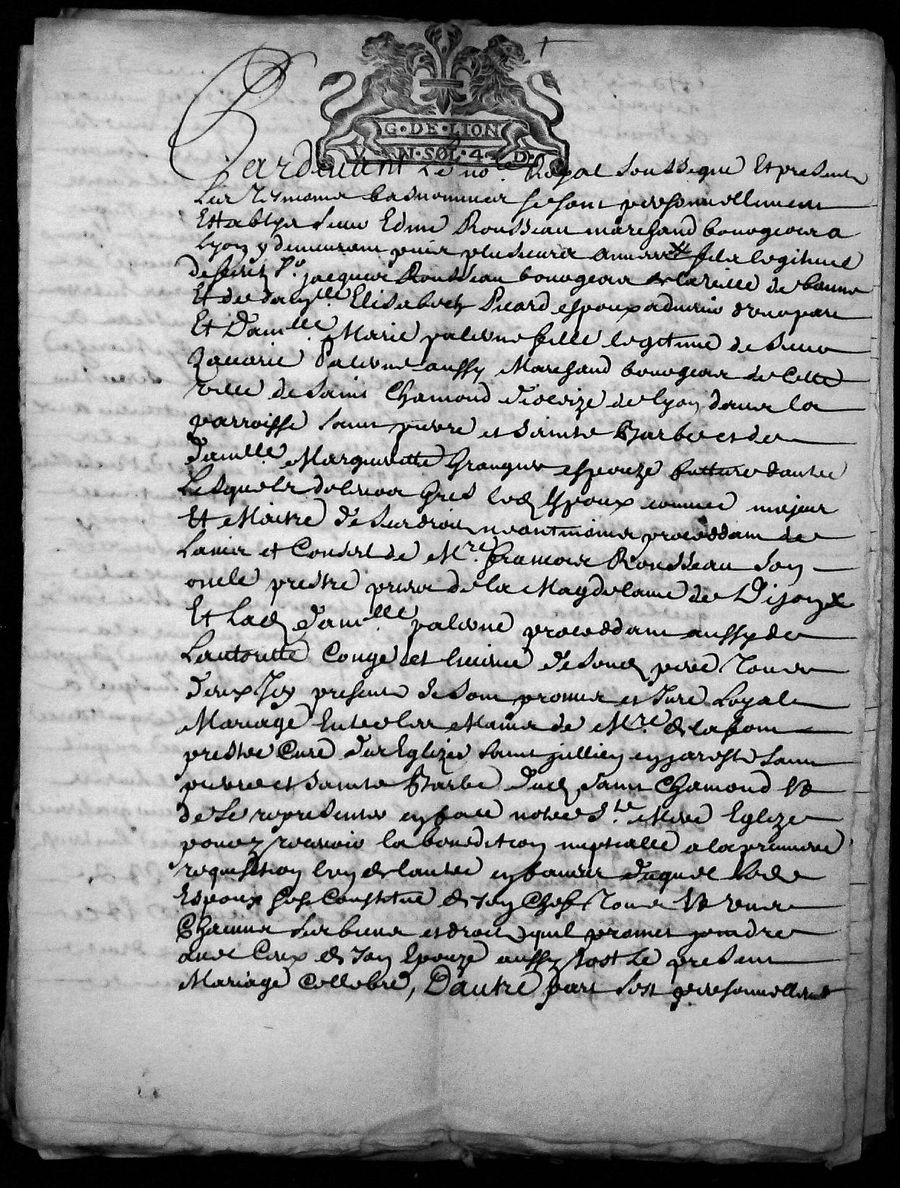 G·DE·LION
VN·SOL·4·D
Pardevant le no.re Royal soussigné Et presents
Les tesmoins bas nommes se sont personnellement
Establys sieur Edme Rousseau marchand bourgeois a
Lyon y demeurant puis plusieurs annees fils legitime
de feu s.r jacques Rousseau bourgeois de la ville de
Et de dam.lle Elisabeth Picard espoux advenir d'une part
Et Dam.lle Marie palerne fille legitime de sieur
Zacarie Palerne aussy Marchand bourgeois de Cette
ville de Saint Chamond dioceze de lyon dans la
parroisse saint pierre et Sainte Barbe et de
dam.lle Margueritte Granger espouze future d'autre
Lesquels de leur gres led Espoux comme majeur
Et Maitre de ses droits neantmoins proceddant de
Lavis et Conseil de M.re francois Rousseau son
oncle prestre prieur de la Magdelaine de Dijon
Et Lad dam.lle palerne proceddant aussy de
Lautorité Congé et licence de sond pere Tous
deux Icy presents se sont promis et Juré Loyal
Mariage Entre les Mains de M.re
prestre Curé des Eglizes saint jullien en jarest saint
pierre et Sainte Barbe dud saint Chamond Et
de se representer en face notre S.te Mere Eglize
pour y recevoir la benediction nuptialle a la premiere
requisition lun de lautre en faveur duquel led
Espoux sest Constitué de son Chef Tous Et uns
Chacuns ses biens et droits quil promet joindre
avec Ceux de son Epouze aussy tost le present
Mariage Cellebré, D'autre part sest personnellement